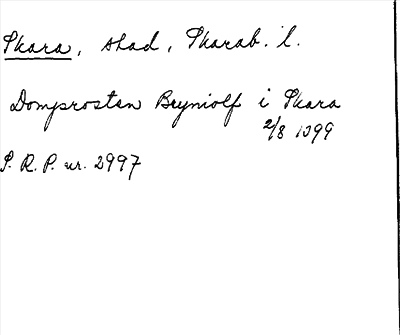 Skara, stad, Skarab. l.
Domprosten Bryniolf i Skara
2/8 1399
S. R. P. nr. 2997